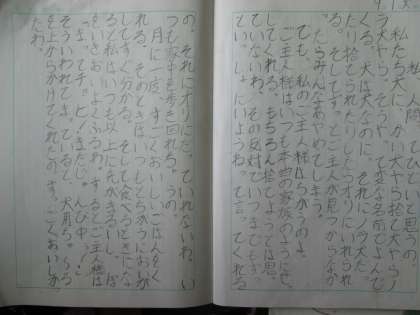 、人間ってひどいと思うの。
私たち犬に、かい犬やら捨て犬やら
う犬やら、そうやって変な名前でよんで
くる。犬は犬なのに。それにノラ犬だ
たり捨てられたりしたらオリにいれられ
る。そしてずっとご主人が見つからなか
たらみんなあやめてしまう。
でも、私のご主人様はちがうの。
ご主人様はいつも本当の家族のようにせ
してくれる。もちろん捨てようとは思
ていないわ。その反対でいつまでもよ
とい、しょにいようねって言、てくれる
の。それにオリにだ、ていれないわ。い
つも家中を歩き回れる。うの。
月に一度、すごくおいしいごはんをく
れる。そのときはいつもとちがうにおいが
してすぐ分かる。そして食べるときにな
ると私はいつも以上に元気がでるし、ぽ
をいきおいよくふるわ。するとご主人様は
「まって、チッピ！まだじゅんび中！」
そういわれてまっていると、犬用ちゅうる
を上からかけてくれたのです。ごくおいしか
たわ。